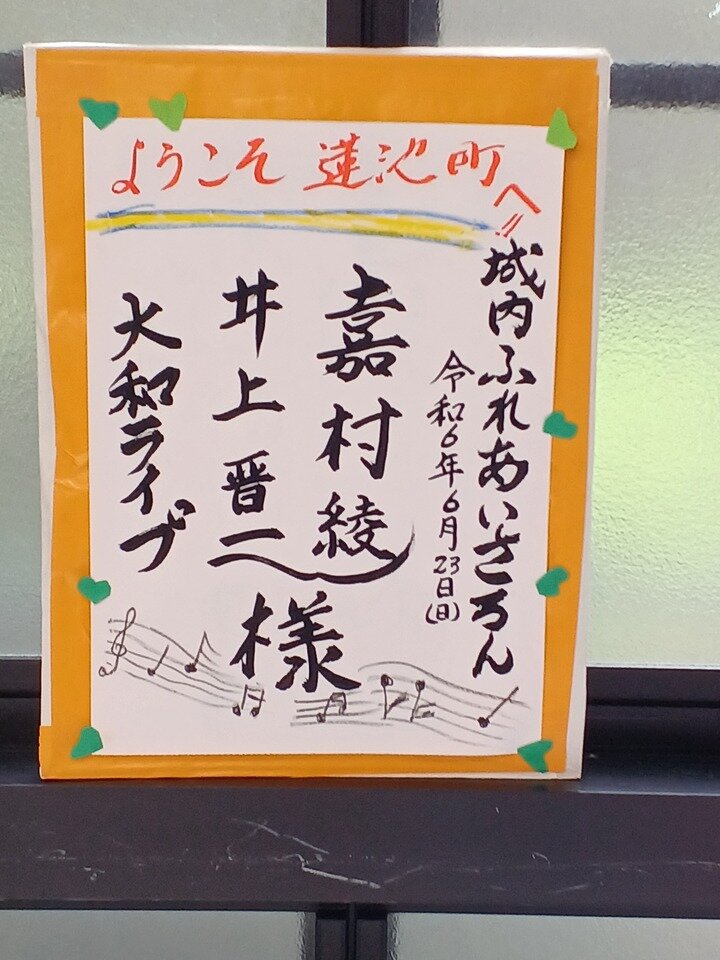 ようこそ 蓮池町へ!!
城内ふれあいさろん
令和6年6月23日(日)
嘉村 綾
井上 晋一
様
大和ライブ